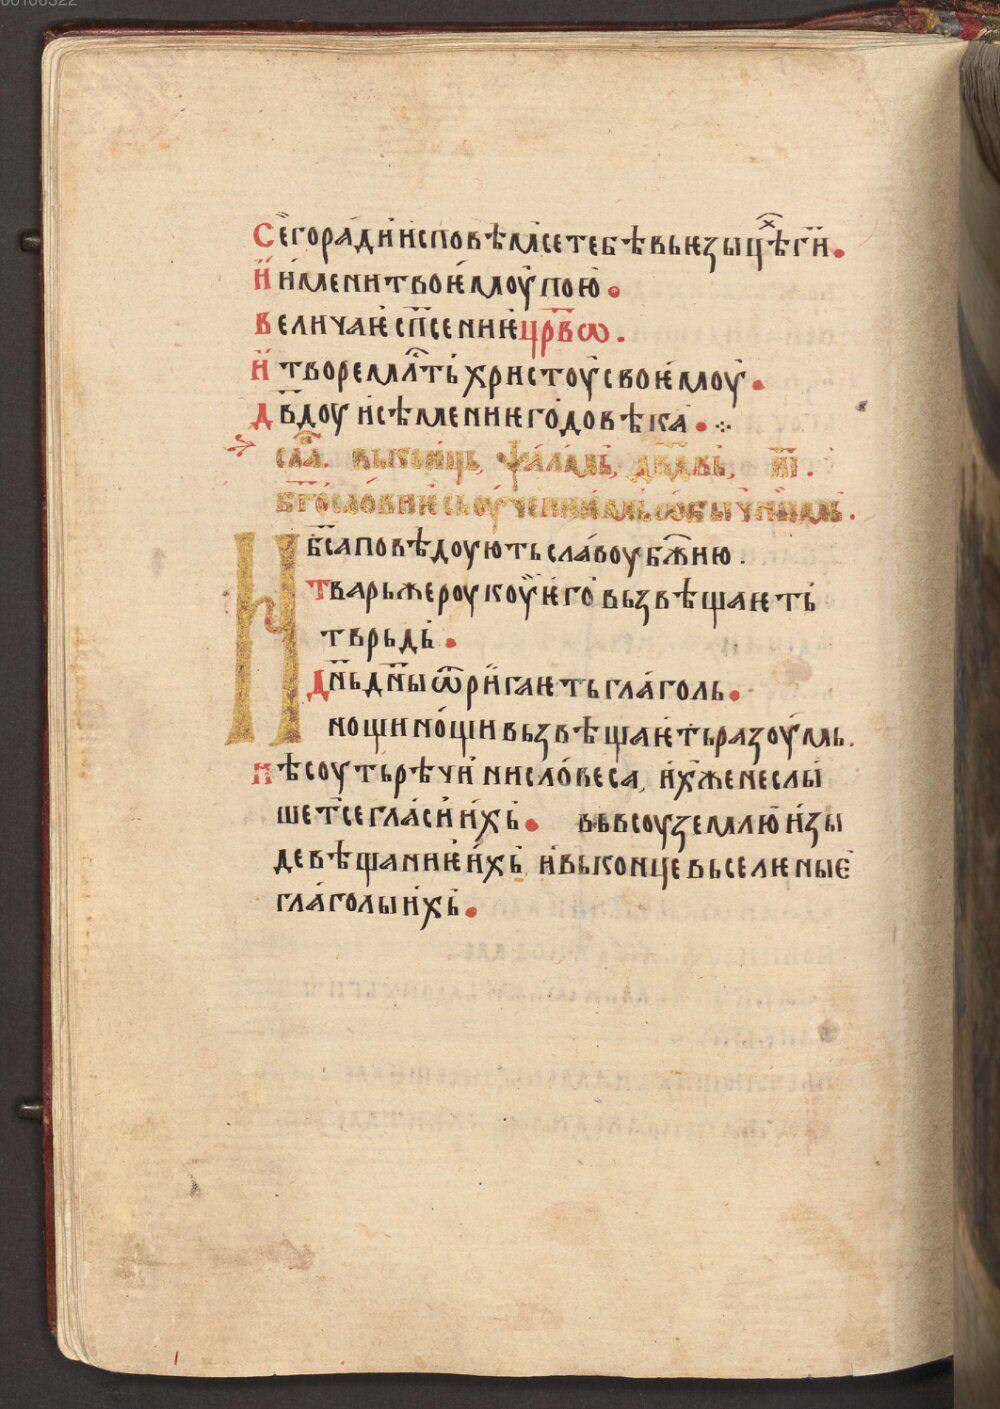 Сегоради исповѣмсетебѣвьꙗзыцѣⷯги.
и именитвоѥмоупою.
величаѥсп҃сениѥцр҃вѡ.
и творемлⷭ҇ть христоусвоѥмоу.
дв҃доу исѣмениѥгодовѣка.
сла҃. выконць, ѱаламь, дв҃двь, и҃і.
бг҃ословниѥ
Нб҃саповѣдоуютьславоубж҃ию.
тварьжероукоуѥговьзвѣщаѥть
тврьдь.
дн҃ьдн҃ыѿригаѥтьглаголь.
нощинощивьзвѣщаѥтьразоумь.
нѣсоутьрѣчи нисловеса, ихженеслы
шетсегласи ихь. вьвсоуземлюизы
девѣщаниѥихь ивьконцевьселѥныѥ
глаголыихь.